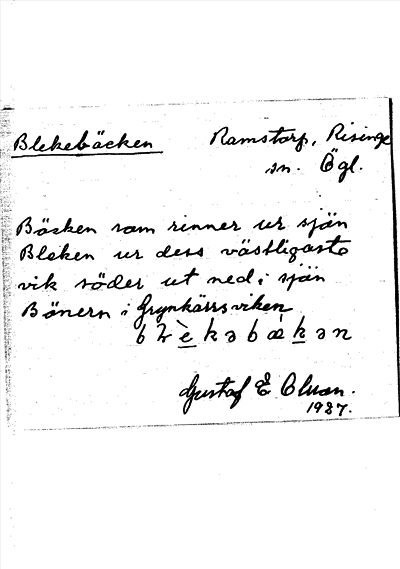 Blekebäcken
Ramstorp, Risinge
sn. Ögl.
Bäcken som rinner ur sjön
Bleken ur dess västligaste
vik söder ut ned i sjön
Bönern i Grynkärrsviken
bɫèkəbækən
Gustaf E
1927.